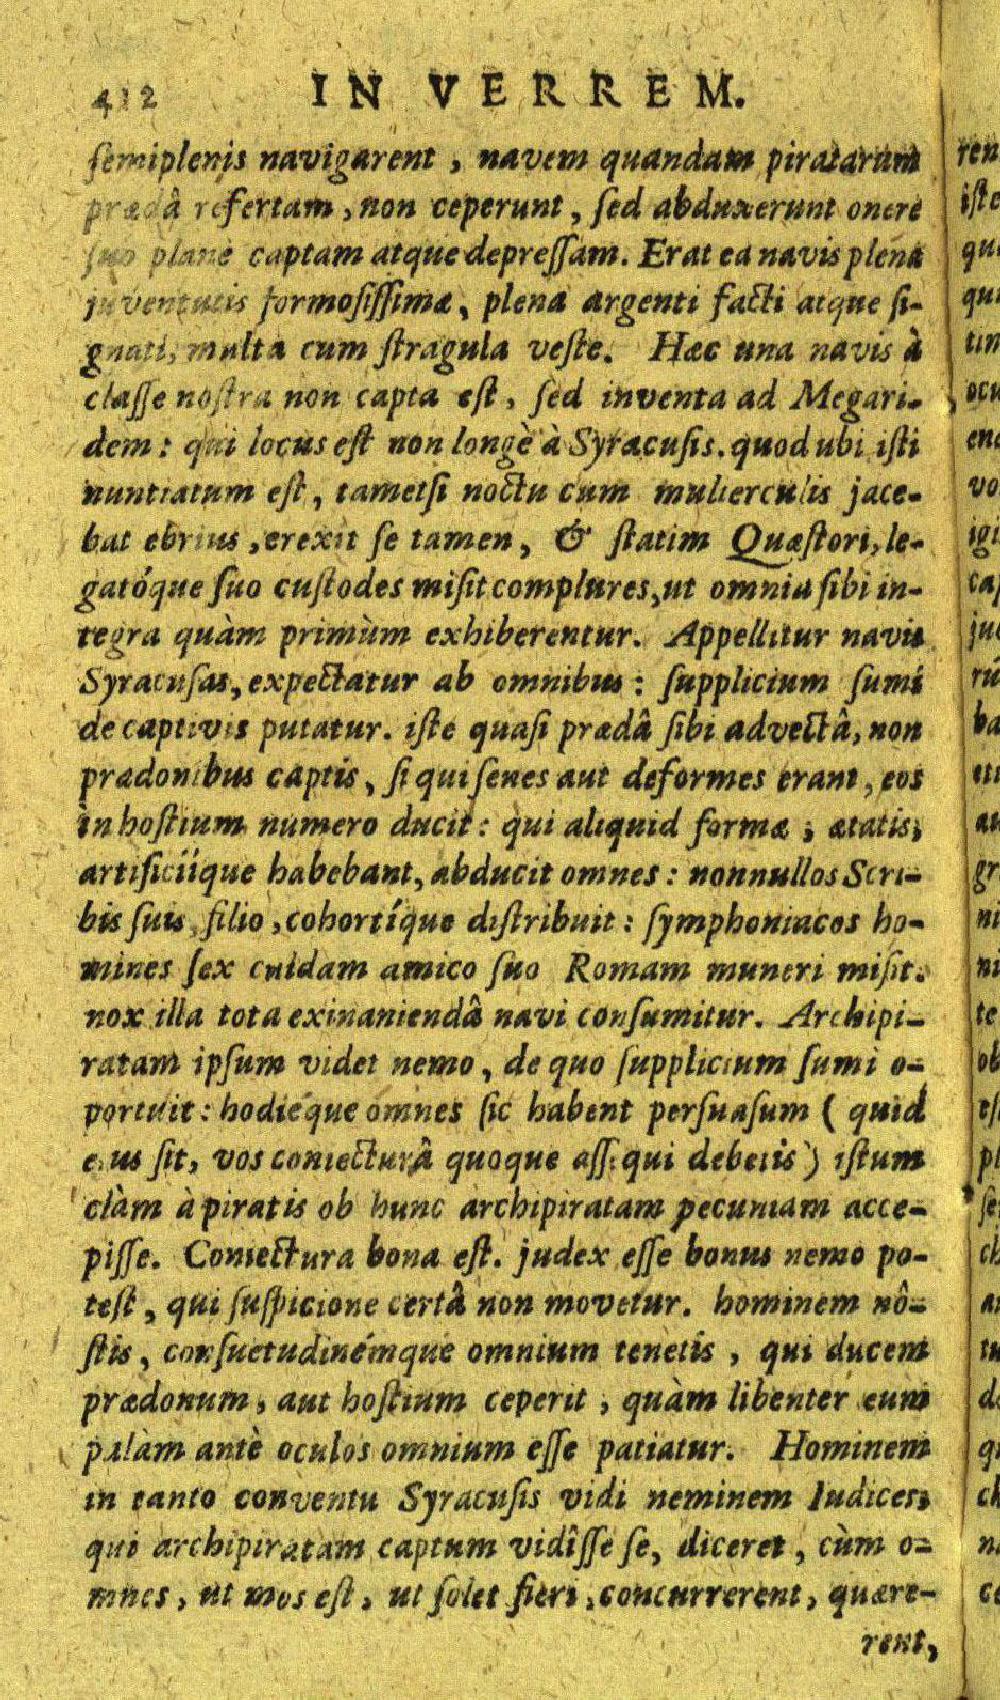 412 IN VERREM.
semiplenis navigarent, navem quandam piratarum
prædâ refertam, non ceperunt, sed abduxerunt onere
suo planè captam atque depressam. Erat ea navis plena
juventutis formosissimæ, plena argenti facti atque si-
gnati, multa cum stragula veste. Hæc una navis à
classe nostra non capta est, sed inventa ad Megari-
dem: qui locus est non longè à Syracusis. quod ubi isti
nuntiatum est, tametsi noctu cum mulierculis jace-
bat ebrius, erexit se tamen, & statim Quæstori, le-
gatóque suo custodes misit complures, ut omnia sibi in-
tegra quàm primùm exhiberentur. Appellitur navis
Syracusas, expectatur ab omnibus: supplicium sumi
de captivis putatur. iste quasi prædâ sibi advectâ, non
prædonibus captis, si qui senes aut deformes erant, eos
in hostium numero ducit: qui aliquid formæ, ætatis,
artificiíque habebant, abducit omnes: nonnullos Scri-
bis suis, filio, cohortíque distribuit: symphoniacos ho-
mines sex cuidam amico suo Romam muneri misit.
nox illa tota exinaniendâ navi consumitur. Archipi-
ratam ipsum videt nemo, de quo supplicium sumi o-
portuit: hodiéque omnes sic habent persuasum (quid
ejus sit, vos coniecturâ quoque assequi debetis) istum
clàm à piratis ob hunc archipiratam pecuniam acce-
pisse. Coniectura bona est. judex esse bonus nemo po-
test, qui suspicione certâ non movetur. hominem nô-
stis, consuetudinémque omnium tenetis, qui ducem
prædonum, aut hostium ceperit, quàm libenter eum
palàm antè oculos omnium esse patiatur. Hominem
in tanto conventu Syracusis vidi neminem Iudices,
qui archipiratam captum vidîsse se, diceret, cùm o-
mnes, ut mos est, ut solet fieri, concurrerent, quære-
rent,